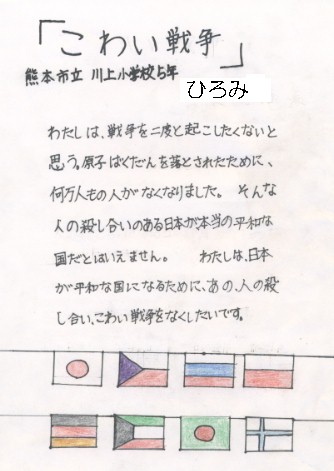 「こわい戦争」
熊本市立 川上小学校5年
ひろみ
わたしは、戦争を二度と起こしたくないと
思う。原子ばくだんを落とされたために、
何万人もの人がなくなりました。 そんな
人の殺し合いのある日本が本当の平和な
国だとはいえません。 わたしは、日本
が平和な国になるために、あの、人の殺
し合い、こわい戦争をなくしたいです。